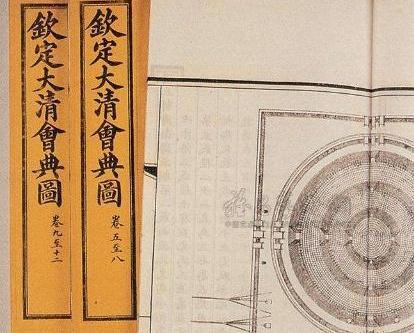 欽定大清會典圖
卷五至八
欽定大清會典圖
卷九至十二